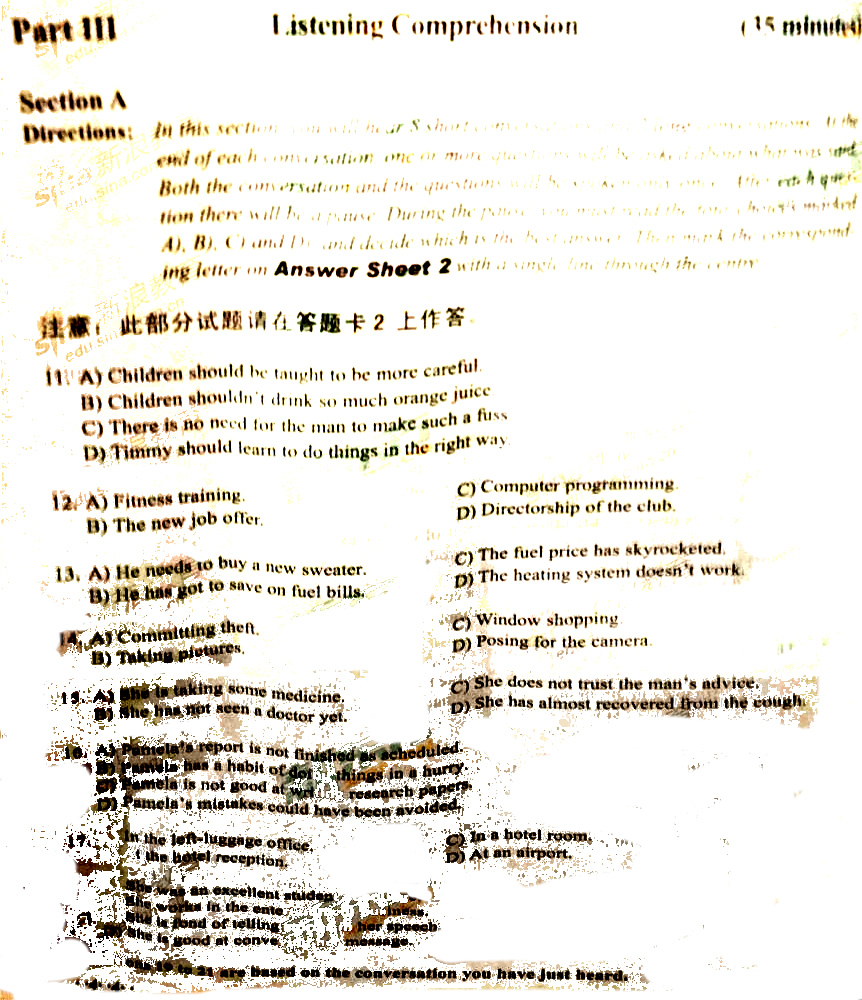 Part III Listening Comprehension (35 minutes)
Section A
Directions: In this section you will hear 8 short
end of each conversation, one or more questions will be asked about what was said.
Both the conversation and the questions will be spoken only once. After each ques-
tion there will be a pause. During the pause, you must read the four choices marked
A), B), C) and D), and decide which is the best answer. Then mark the correspond-
ing letter on Answer Sheet 2 with a single line through the centre.
注意: 此部分试题请在答题卡 2 上作答.
11. A) Children should be taught to be more careful.
B) Children shouldn't drink so much orange juice
C) There is no need for the man to make such a fuss
D) Timmy should learn to do things in the right way.
12. A) Fitness training. C) Computer programming.
B) The new job offer. D) Directorship of the club.
13. A) He needs to buy a new sweater. C) The fuel price has skyrocketed.
B) He has got to save on fuel bills. D) The heating system doesn't work.
14. A) Committing theft. C) Window shopping.
B) Taking pictures. D) Posing for the camera.
15. A) She is taking some medicine. C) She does not trust the man's advice.
B) She has not seen a doctor yet. D) She has almost recovered from the cough.
16. A) Pamela's report is not finished as scheduled.
B) Pamela has a habit of things in a hurry.
C) Pamela is not good at research papers.
D) Pamela's mistakes could have been avoided.
17. In the left-luggage office. C) In a hotel room.
the hotel reception. D) At an airport.
She was an excellent
She works in the
She is fond of telling her speech
D) She is good at message.
are based on the conversation you have just heard.